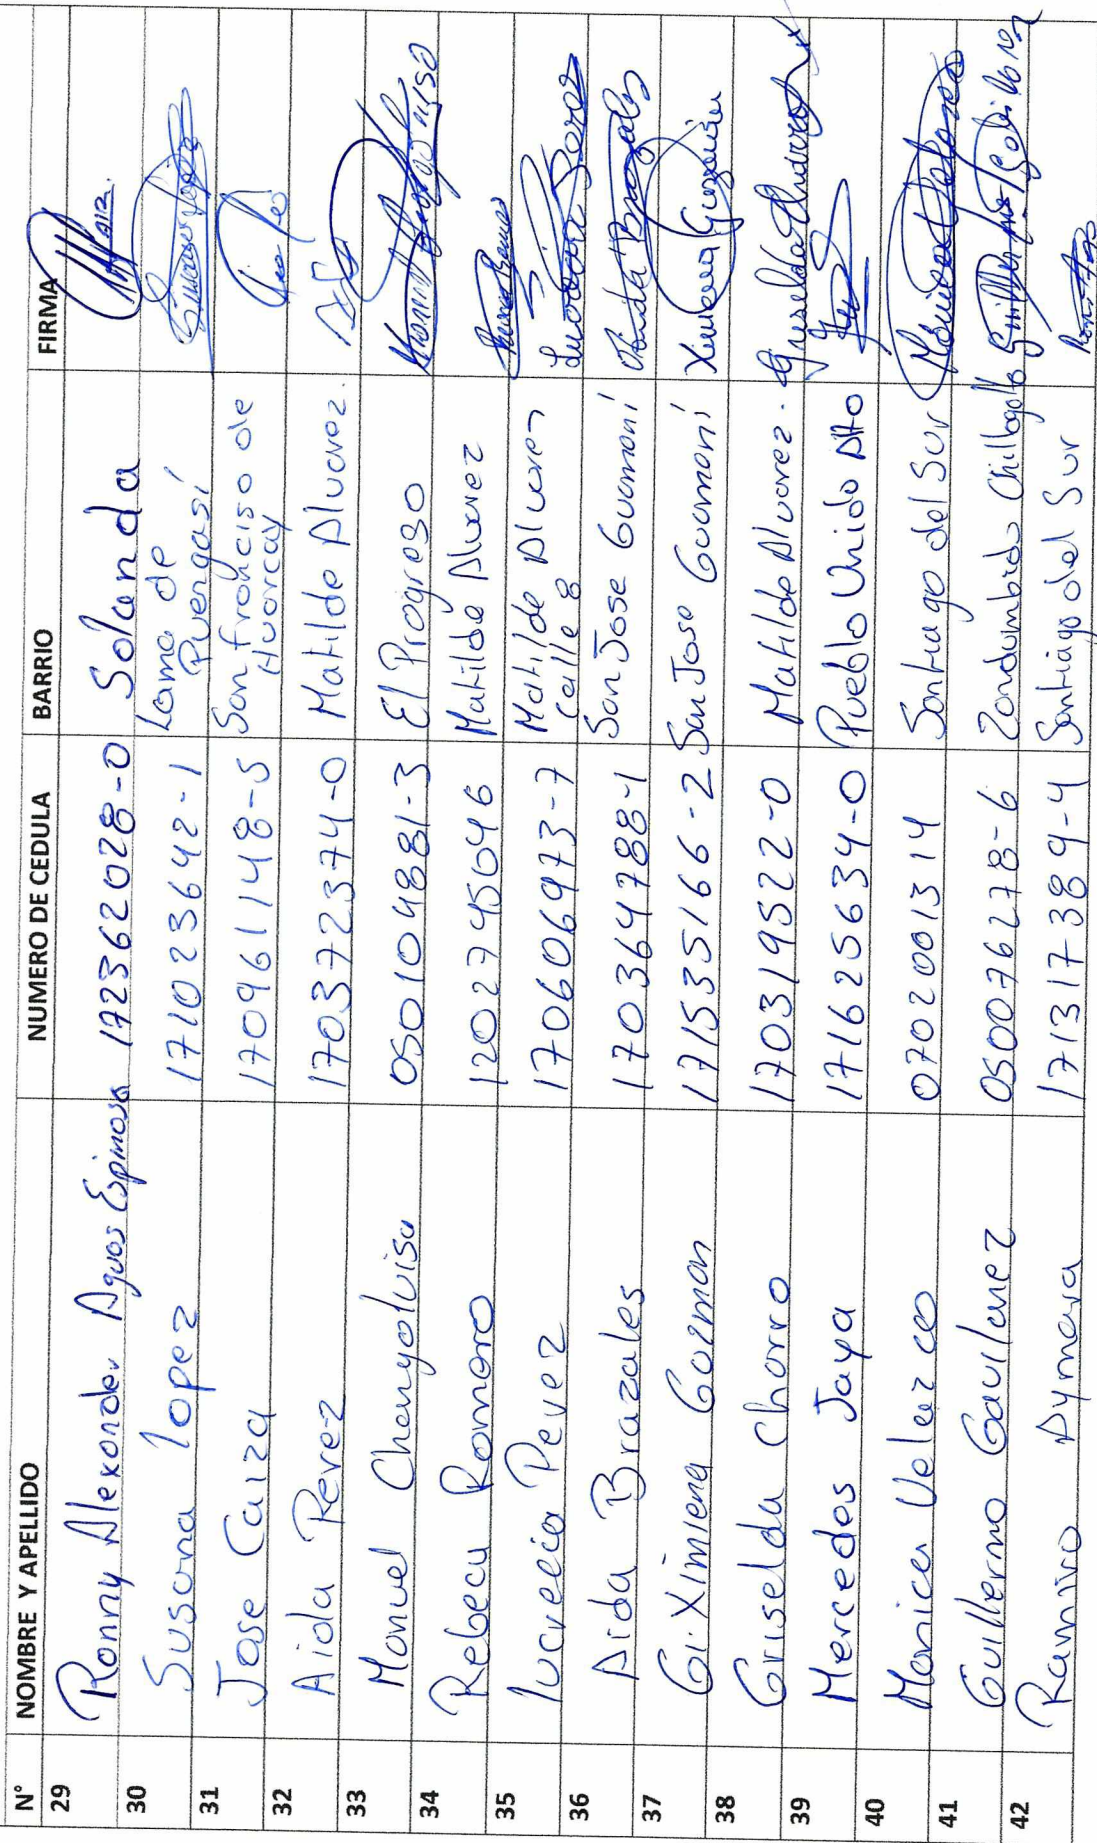 N° NOMBRE Y APELLIDO NUMERO DE CEDULA BARRIO FIRMA
29 Ronny Alexander Aguas Espinosa 172362028-0 Solanda
30 Susana lopez 171023642-1 Loma de Puengasí
31 Jose Caiza 170961148-5 San francisco de Huarcay
32 Aida Perez 170372374-0 Matilde Alvarez.
33 Manuel Changoluisa 050104881-3 El Progreso
34 Rebeca Romero 1202745046 Matilde Alvarez
35 lucrecia Perez 170606973-7 Matilde Alvarez Calle 8
36 Aida Brazales 170364788-1 San Jose Guamaní
37 Gi. Ximiena Guzman 171535166-2 San Jose Guamaní Ximena Guzmán
38 Griselda Chorro 170319522-0 Matilde Alvarez. Griselda
39 Mercedes Jaya 171625634-0 Pueblo Unido Alto
40 Monica Velarco 0702001314 Santiago del Sur
41 Guillermo Gavilanez 050076278-6 Zondumbide Chillogallo
42 Ramiro Aymara 171317389-4 Santiago del Sur